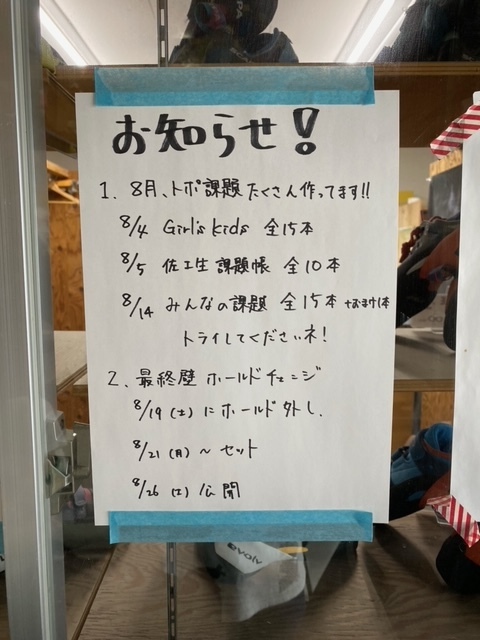 お知らせ!
1. 8月、トポ課題たくさん作ってます!!
8/4 Girl's kids 全15本
8/5 佐工生 課題帳 全10本
8/14 みんなの課題 全15本 +おまけ1本
トライしてくださいネ!
2、最終壁 ホールドチェンジ
8/19 (土) にホールド外し.
8/21 (月) ~ セット
8/26 (土) 公開
evolv